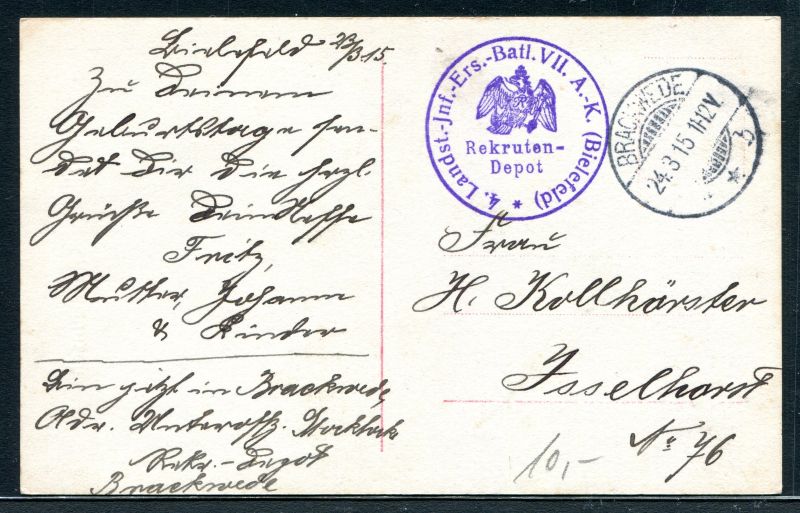 Bielefeld 23/3.15.
Zu Deinem
Geburtstage sen-
det Dir die herzl.
Grüße Dein Neffe
Fritz,
Mutter, Johann
& Kinder
Bin jetzt in Brackwede,
Adr. Unteroffz.
Rekr.-Depot
Brackwede
4. Landst.-Inf.-Ers.-Batl. VII. A.-K. (Bielefeld) *
Rekruten-
Depot
BRACKWEDE
24.3.15.1-12V.
* 3
Frau
H. Kollhörster
Isselhorst
No 76
10,-